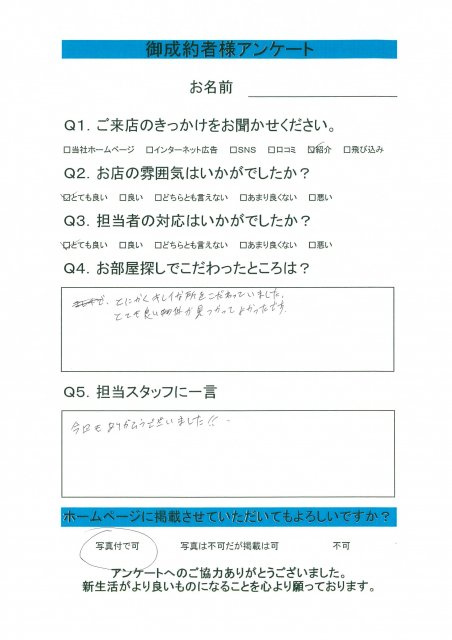 御成約者様アンケート
お名前
Q1. ご来店のきっかけをお聞かせください。
□当社ホームページ □インターネット広告 □SNS □口コミ ☑紹介 □飛び込み
Q2. お店の雰囲気はいかがでしたか？
☑とても良い □良い □どちらとも言えない □あまり良くない □悪い
Q3. 担当者の対応はいかがでしたか？
☑とても良い □良い □どちらとも言えない □あまり良くない □悪い
Q4. お部屋探しでこだわったところは？
とにかくキレイな所をこだわっていました。
とても良い物件が見つかってよかったです。
Q5. 担当スタッフに一言
ありがとうございました!!
ホームページに掲載させていただいてもよろしいですか？
写真付で可 写真は不可だが掲載は可 不可
アンケートへのご協力ありがとうございました。
新生活がより良いものになることを心より願っております。